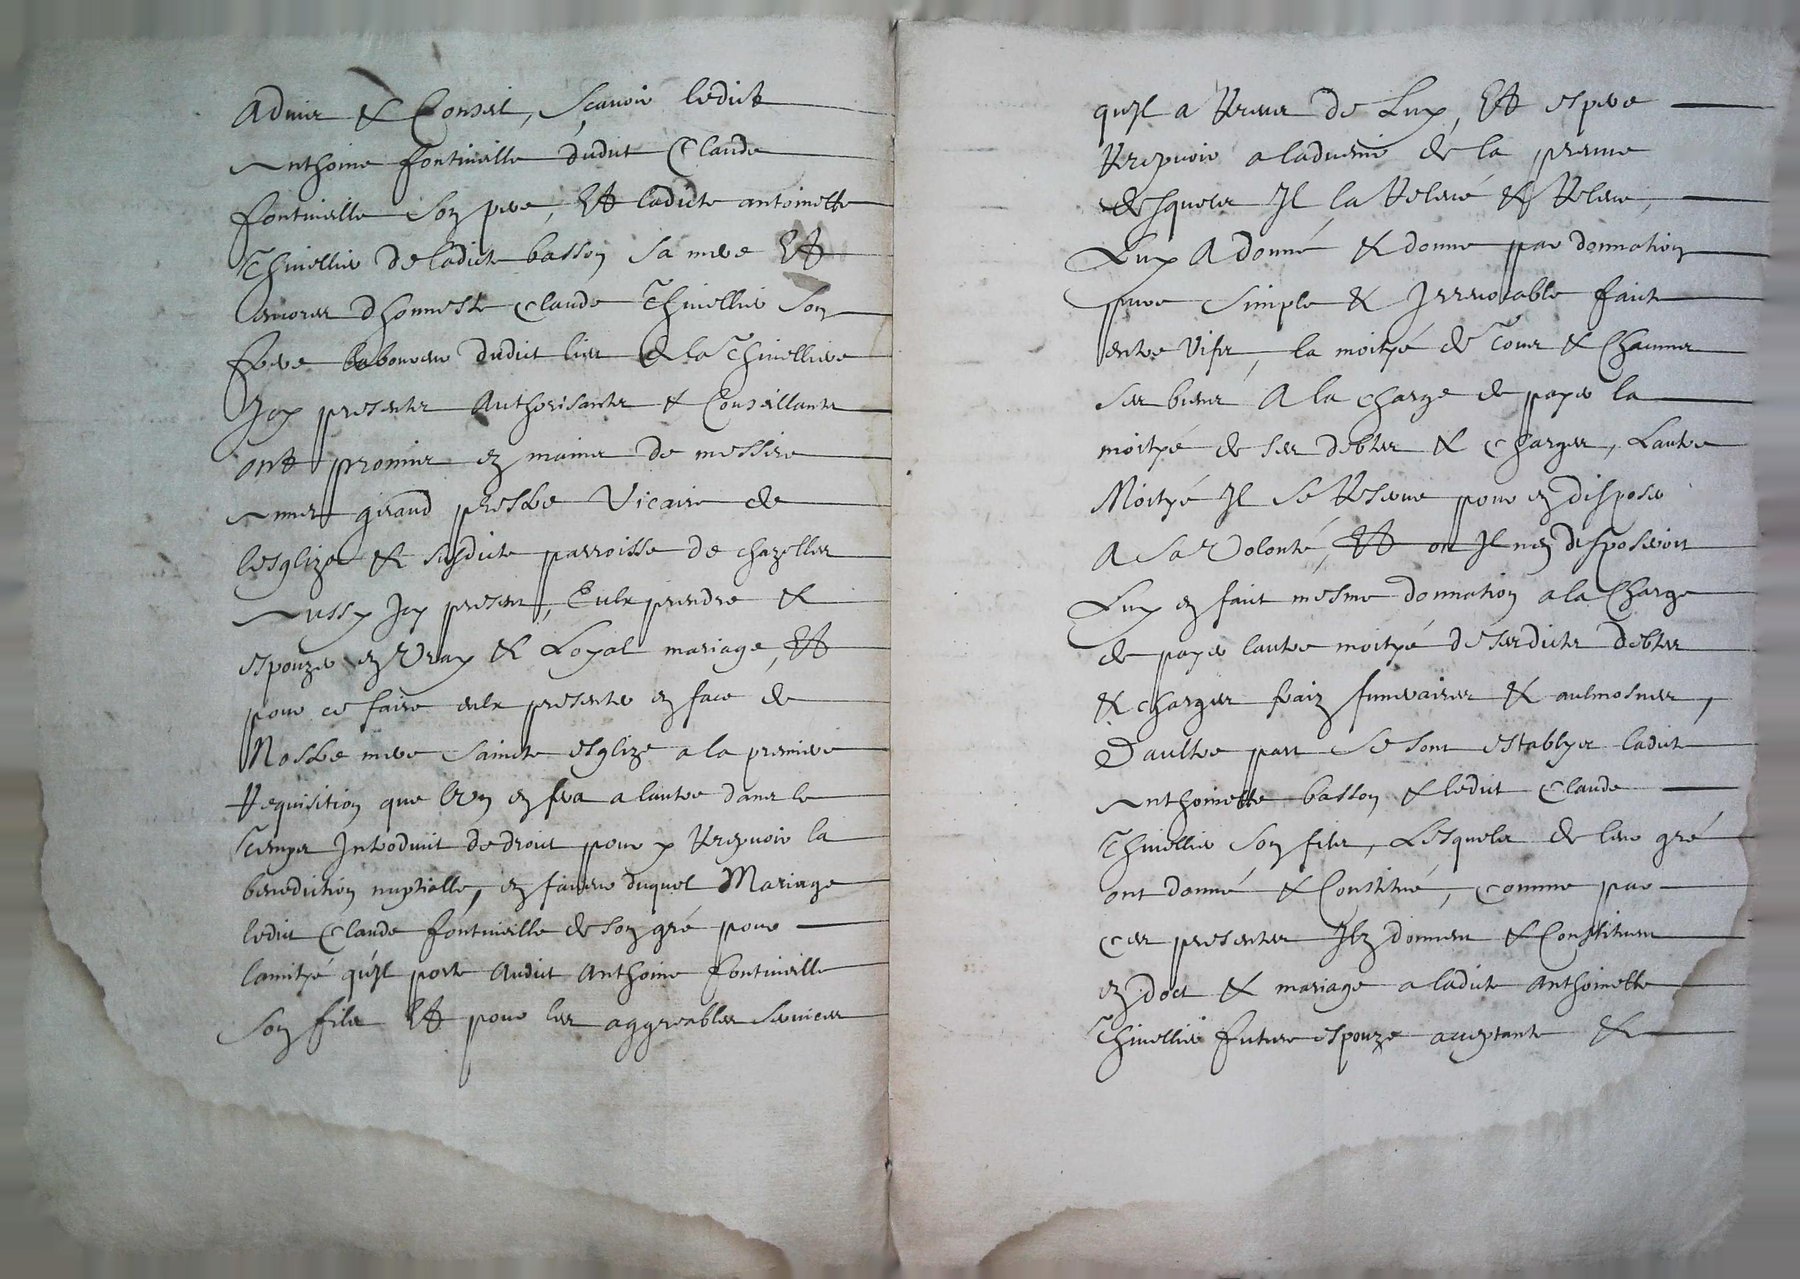 Aduis & Conseil, Scauoir ledict
Anthoine fontineille dudict Claude
fontineille Son pere, Et ladicte antoinette
Thiuellier de ladicte basson sa mere Et
encores dhonneste Claude Thiuellier Son
frere laboureur dudict lieu de la Thiuelliere
Icy presentz Authorisantz & Conseillantz
ont promis es mains de messire
Annet giraud prestre Vicaire de
lesglize & susdicte parroisse de chazelles
Aussy Icy present, Eulx prendre &
espouzer en Vray & Loyal mariage, Et
pour ce faire eulx presenter en face de
Nostre mere saincte esglize a la premiere
Requisition que lVn en fera a lautre dans le
temps Introduict de droict pour y Recepuoir la
benediction nuptialle, en faueur duquel Mariage
ledict Claude fontineille de Son gré pour
lamityé qu'Il porte Audict Anthoine fontineille
Son filz Et pour les aggreables seruices
qu'Il a Receus de Luy, Et espere
Recepuoir a laduenir de la preuue
desquelz Il la Releué & Releue,
Luy A donné & donne par donnation
pure simple & Irreuocable faicte
entre Vifz, la moityé de Tous & Chacuns
ses biens A la charge de payer la
moityé de ses debtes & charges, Lautre
Moityé Il se Reserue pour en disposer
A Sa Volonté, Et ou Il nen disposeroit
Luy en faict mesme donnation a la Charge
de payer lautre moityé de sesdictz debtes
& charges fraiz funeraires & aulmosnes,
Daultre part se sont establyes ladict
Anthoinette basson & ledict Claude
Thiuellier Son filz, Lesquelz de leur gré
ont donné & Constitué, comme par
ces presentes Ilz donnent & Constituent
en doct & mariage a ladicte Anthoinette
Thiuellier future espouze acceptante &